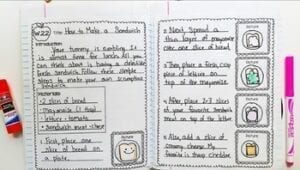 W.22
Title: How to Make a Sandwich
Introduction
Your tummy is rumbling. It is
almost time for lunch. All you
can think about is having a delicious
fresh sandwich. Follow these simple
steps to make your own scrumptious
sandwich.
Materials
-2 slices of bread
-lettuce -tomato
-Sandwich meat -cheese
1. First, place one
slice of bread on
a plate.
Picture
2. Next, spread a
thin layer of mayonnaise
over one slice of bread.
Picture
3. Then, place a fresh, crisp
piece of lettuce on
top of the mayonnaise.
Picture
4. After, place 2-3 slices
of your favorite sandwich
meat on top of the lettuce.
Picture
5. Also, add a slice of
creamy cheese. My
favorite is sharp cheddar.
Picture